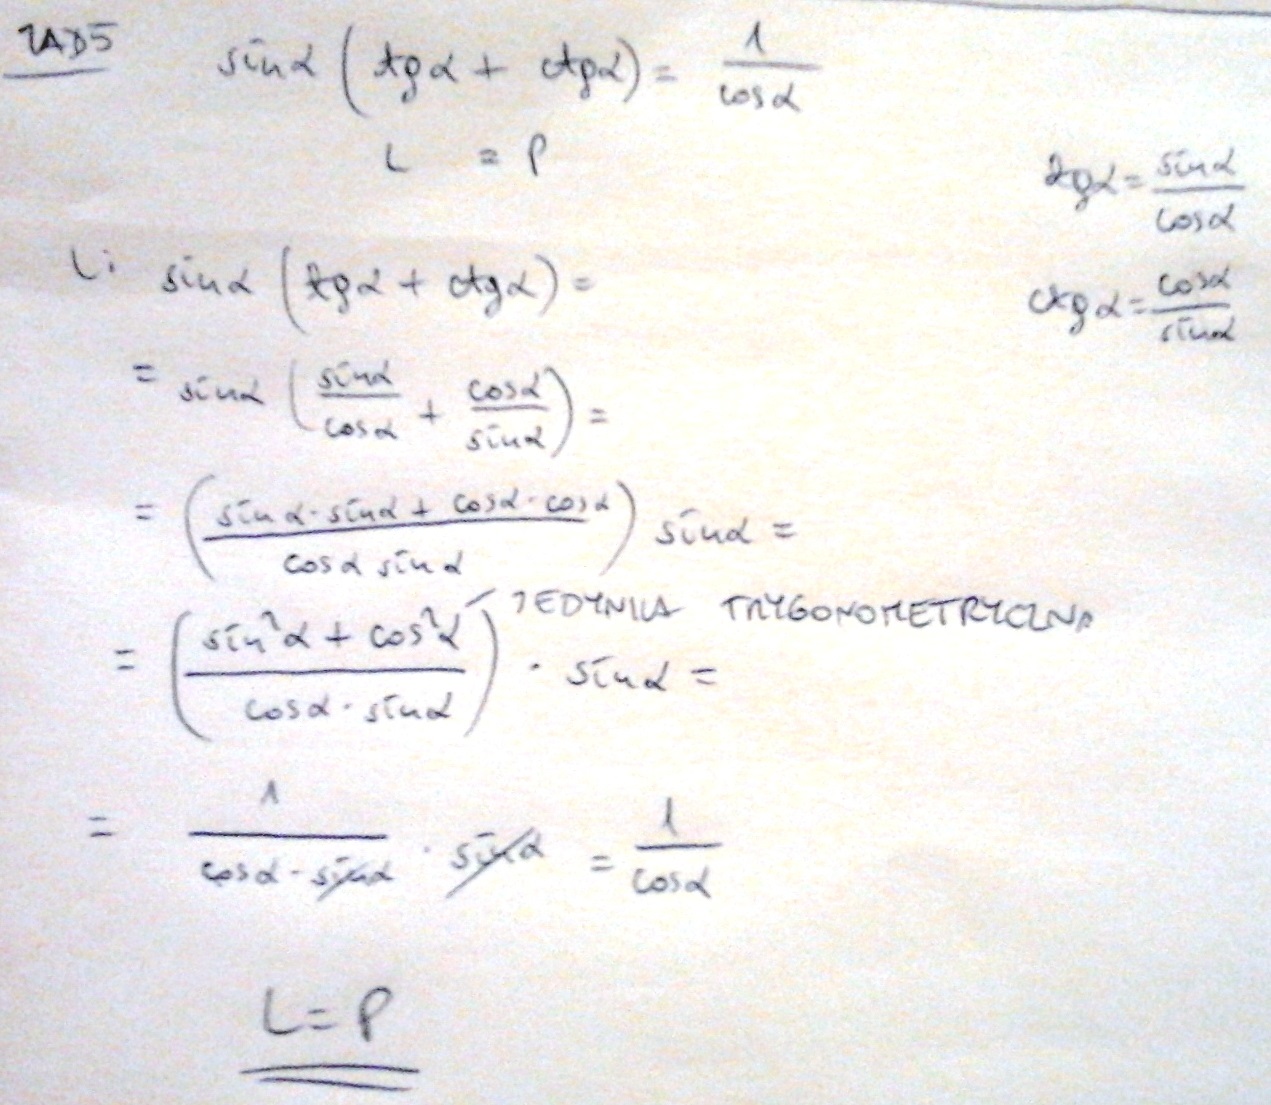 ZAD5
sinα (tgα + ctgα) = 1/cosα
L = P
tgα = sinα/cosα
ctgα = cosα/sinα
L: sinα (tgα + ctgα) =
= sinα (sinα/cosα + cosα/sinα) =
= (sinα·sinα + cosα·cosα / cosα sinα) sinα =
JEDYNKA TRYGONOMETRYCZNA
= (sin²α + cos²α / cosα·sinα) · sinα =
= 1/cosα·sinα · sinα = 1/cosα
L=P